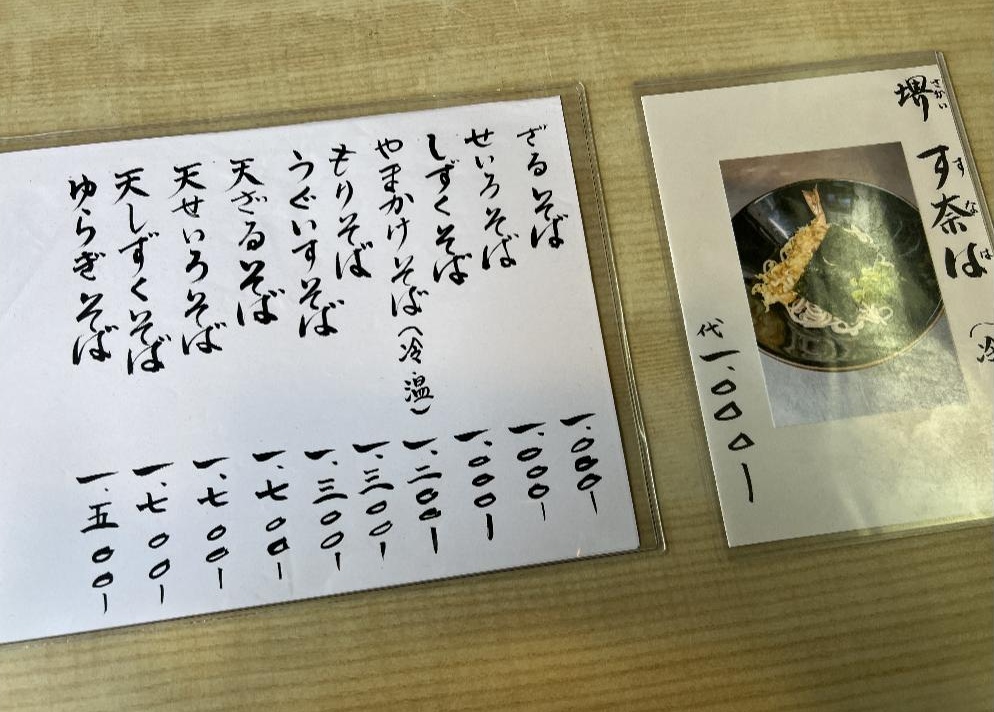 堺 す奈ば (冷
さかい すなば
代 一、〇〇〇ー
ざるそば 一、〇〇〇ー
せいろそば 一、〇〇〇ー
しずくそば 一、〇〇〇ー
やまかけそば(冷・温) 一、二〇〇ー
もりそば 一、三〇〇ー
うぐいすそば 一、三〇〇ー
天ざるそば 一、七〇〇ー
天せいろそば 一、七〇〇ー
天しずくそば 一、七〇〇ー
ゆらぎそば 一、五〇〇ー